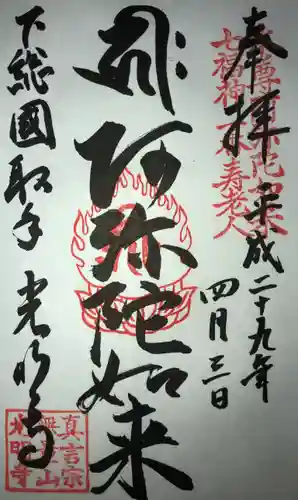 奉拝
平成二十九年
四月三日
阿弥陀如来
下総國取手 光明寺
七福神 寿老人
真言宗
光明寺